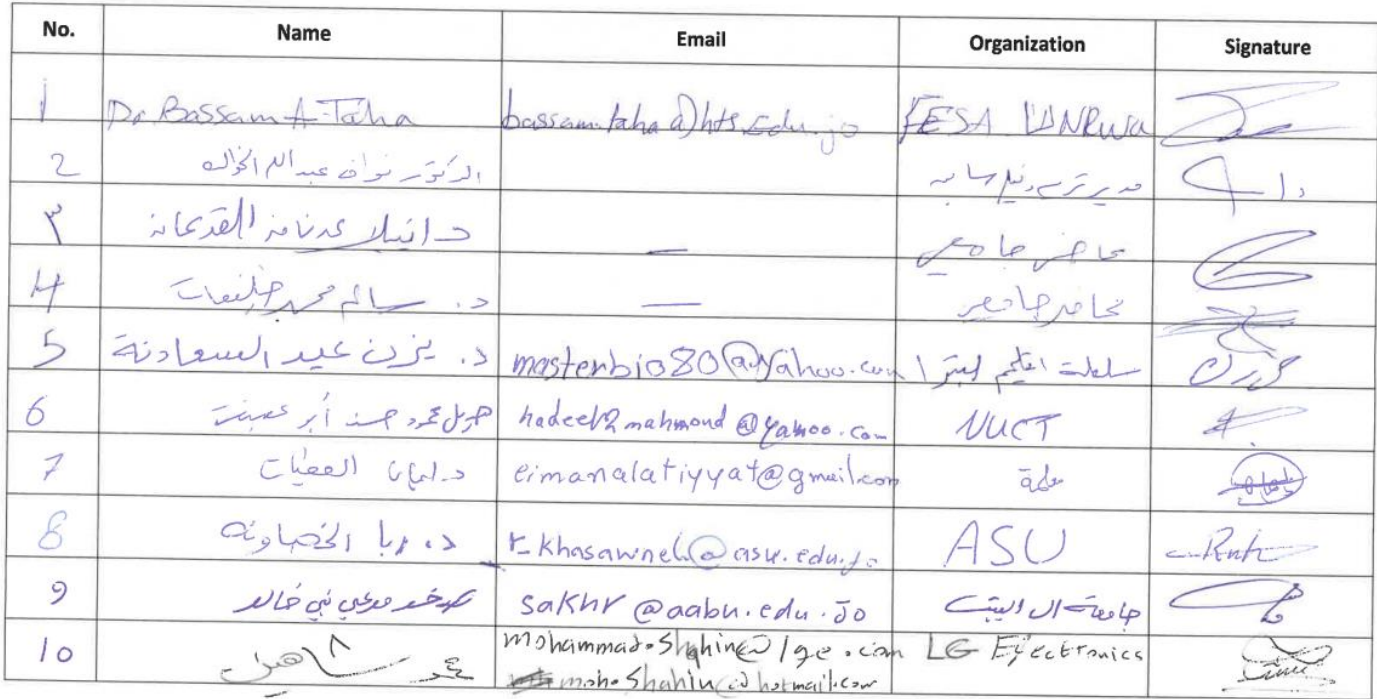 No. Name Email Organization Signature
1 Dr Bassam A-Taha bassam.taha@hts.edu.jo FESA UNRWA
2 الدكتور نواف عبدالله الخوالده
٣ د. عدنان محاضر جامعي
4 د. سالم محمد خليفات — محاضر جامعي
5 د. يزن عيد السعادنة masterbio80@yahoo.com سلطة اقليم البترا
6 هديل محمود حسن أبو hadeel2mahmoud@yahoo.com NUCT
7 د. ايمان العطيات eimanalatiyyat@gmail.com معلمة
8 د. ربا الخصاونه r_khasawneh@asu.edu.jo ASU
9 صخر مرعي بني خالد sakhr@aabu.edu.Jo جامعة ال البيت
10 محمد شاهين mohammad.Shahin@lge.com LG Electronics
moh.Shahin@hotmail.com